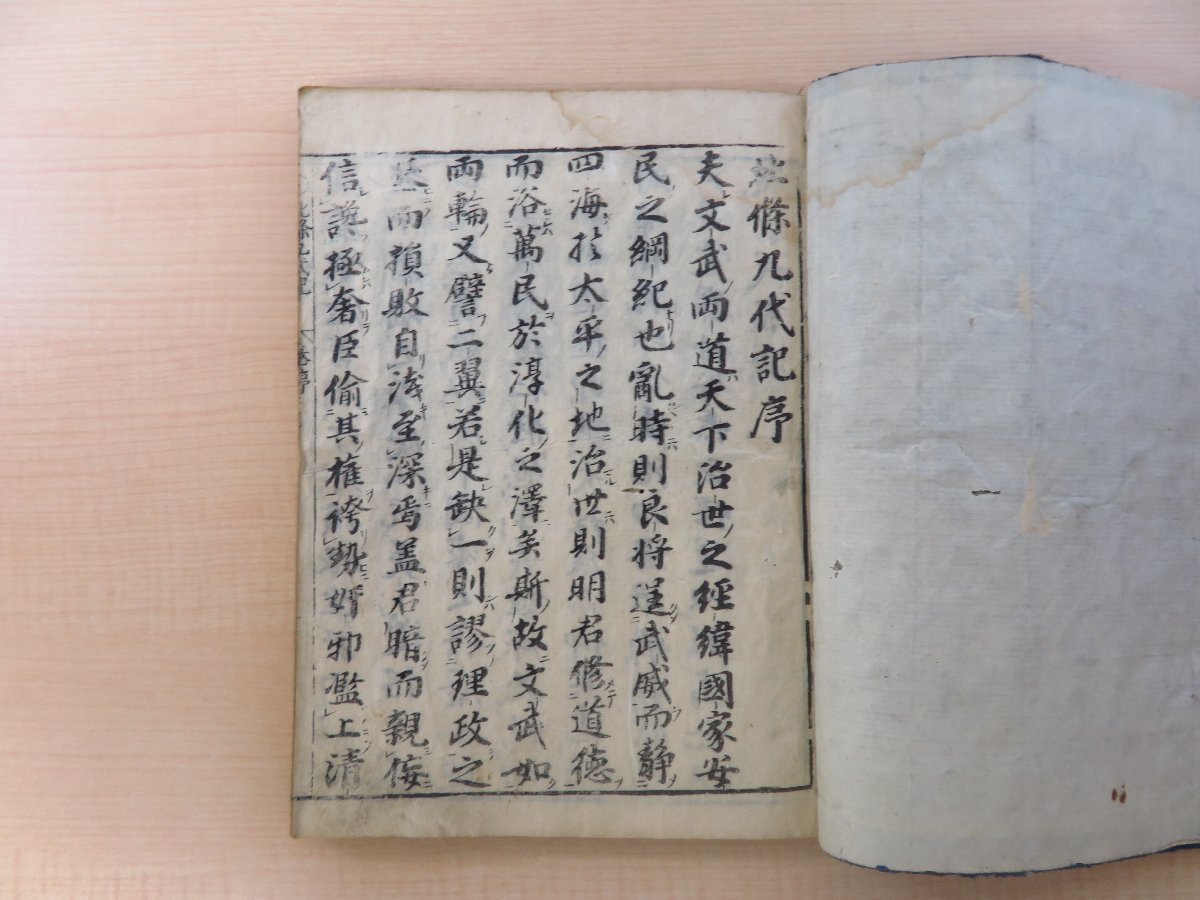 北條九代記序
夫文武両道天下治世之經緯國家安
民之綱紀也亂時則良将逞武威而静
四海於太平之地治世則明君修道德
而浴萬民於淳化之澤矣斯故文武如
両輪又譬二翼若是缺一則謬理政之
基而損敗自淺至深焉盖君暗而親佞
信讒極奢臣偷其権袴勢婿邪濫上清
北條九代記 巻序